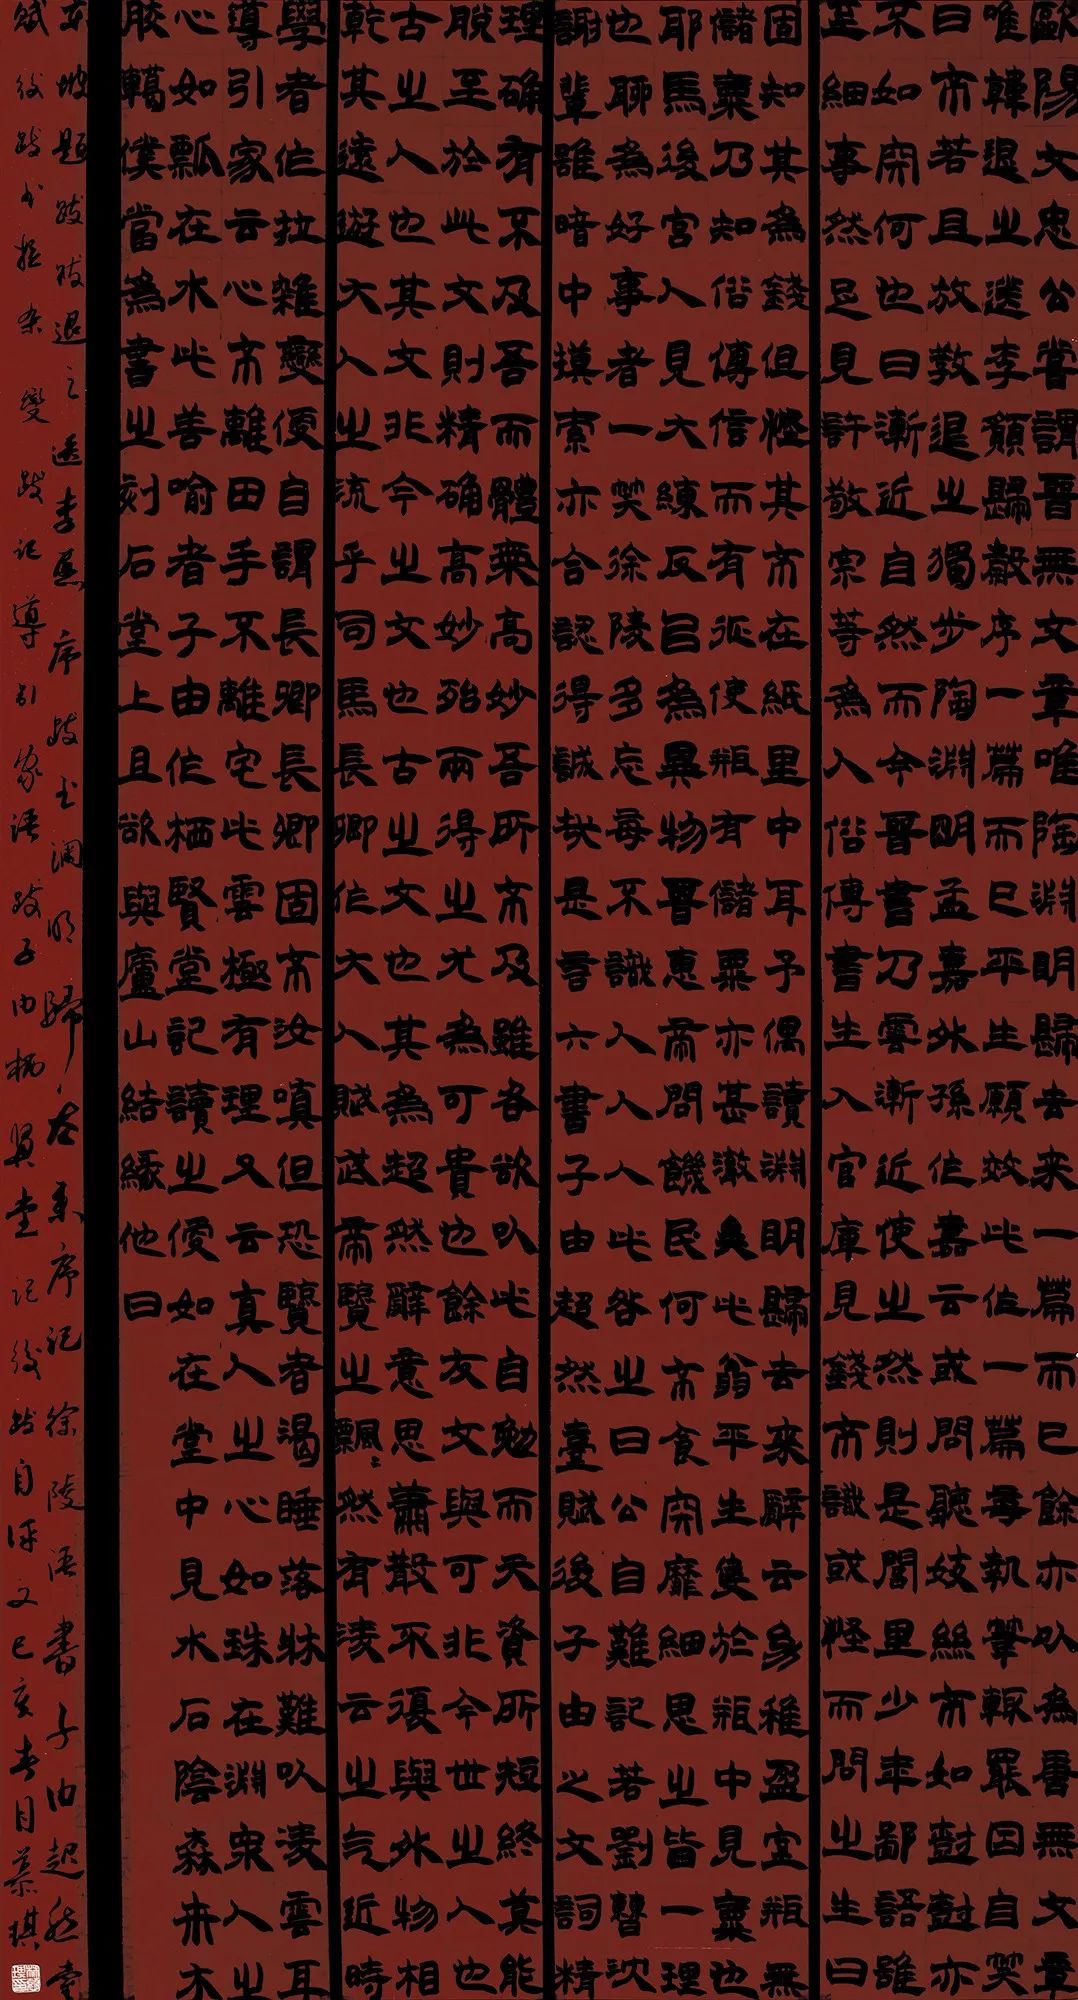 歐陽文忠公嘗謂晉無文章唯陶淵明歸去来一篇而已餘亦以為唐無文章
唯韓退之送李願歸穀序一篇而已平生願效此作一篇每執筆輒罷因自笑
曰不若且放教退之獨步陶淵明孟嘉外孫作嘉云或問聽妓絲不如竹竹亦
不如肉何也曰漸近自然而今晉書乃雲漸近使之然則是閭里少年鄙語雖
至細事然足見許敬宗等為人俗傳書生入官庫見錢不識或怪而問之生曰
固知其為錢但怪其不在紙里中耳予偶讀淵明歸去来辭云幼稚盈室瓶無
儲粟乃知俗傳信而有征使瓶有儲粟亦甚微矣此翁平生隻於瓶中見粟也
耶馬後宮人見大練反以為異物晉惠帝問饑民何不食肉糜細思之皆一理
也聊為好事者一笑徐陵多忘每不識人人以此咎之曰公自難記若劉曹沈
謝輩雖暗中摸索亦合認得誠哉是言六書子由超然臺賦後子由之文詞精
理確有不及吾而體氣高妙吾所不及雖各欲以此自勉而天資所短終莫能
脫至於此文則精確高妙殆兩得之尤為可貴也餘友文與可非今世之人也
古之人也其文非今之文也古之文也其為超然辭意思蕭散不復與外物相
乾其遠遊大人之流乎司馬長卿作大人賦武帝覽之飄飄然有凌云之气近時
學者作拉雜變便自謂長卿長卿固不汝嗔但恐覽者渴睡落牀難以凌雲耳
導引家云心不離田手不離宅此雲極有理又云真人之心如珠在淵眾人之
心如瓢在水此善喻者子由作栖賢堂記讀之便如在堂中見水石陰森来木
膠轕僕當為書之刻石堂上且欲與廬山結緣他日
東坡題跋跋退之送李愿序跋書淵明歸去来序記徐陵語書子由超然臺
賦後跋書拉雜變跋記導引家語跋子由栖賢堂記後跋自評文己亥春月慕琪